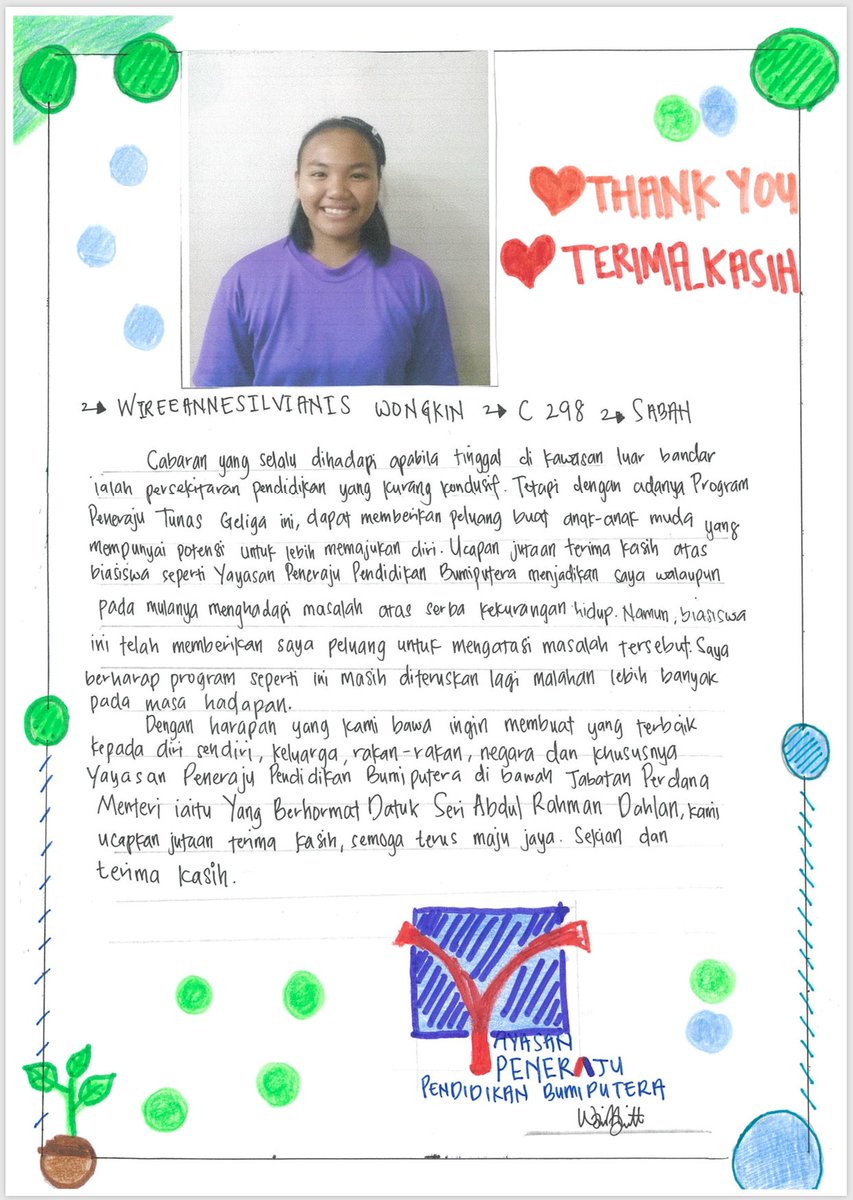 THANK YOU
TERIMA KASIH
WIREEANNESILVIANIS WONGKIN → C 298 → SABAH
Cabaran yang selalu dihadapi apabila tinggal di kawasan luar bandar
ialah persekitaran pendidikan yang kurang kondusif. Tetapi dengan adanya Program
Peneraju Tunas Geliga ini, dapat memberikan peluang buat anak-anak muda yang
mempunyai potensi untuk lebih memajukan diri. Ucapan jutaan terima kasih atas
biasiswa seperti Yayasan Peneraju Pendidikan Bumiputera menjadikan saya walaupun
pada mulanya menghadapi masalah atas serba kekurangan hidup. Namun, biasiswa
ini telah memberikan saya peluang untuk mengatasi masalah tersebut. Saya
berharap program seperti ini masih diteruskan lagi malahan lebih banyak
pada masa hadapan.
Dengan harapan yang kami bawa ingin membuat yang terbaik
kepada diri sendiri, keluarga, rakan-rakan, negara dan khususnya
Yayasan Peneraju Pendidikan Bumiputera di bawah Jabatan Perdana
Menteri iaitu Yang Berhormat Datuk Seri Abdul Rahman Dahlan, kami
ucapkan jutaan terima kasih, semoga terus maju jaya. Sekian dan
terima kasih.
YAYASAN
PENERAJU
PENDIDIKAN BUMIPUTERA